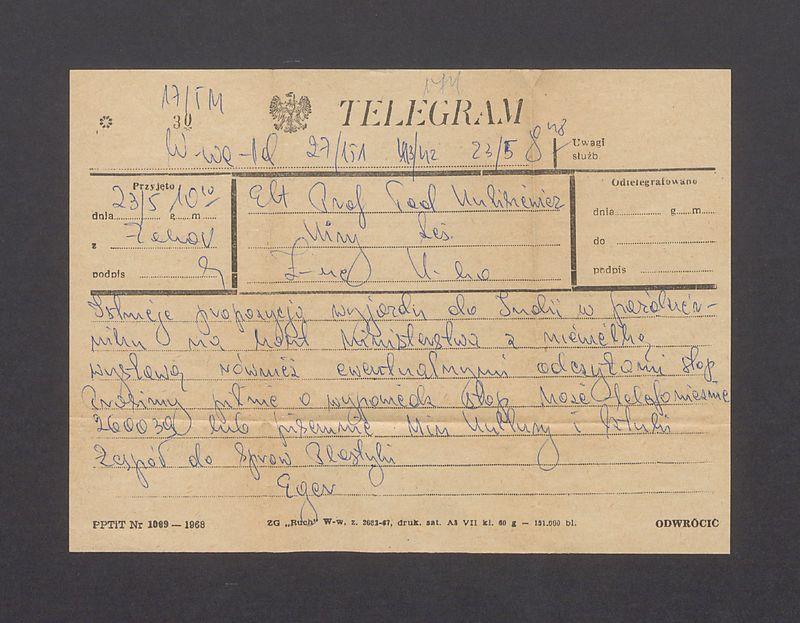 17/TM
30
TELEGRAM
W-wa-1d 27/151 43/42 23/5 8⁴⁸
Uwagi
służb
Przyjęto
dnia 23/5 g. 10¹⁰ m.
z
podpis
Elt Prof Tad
Odtelegrafowano
dnia g. m.
do
podpis
Istnieje propozycja wyjazdu do Indii w paździer-
niku na koszt Ministerstwa z niewielką
wystawą również ewentualnymi odczytami stop
Prosimy pilnie o wypowiedz stop Może telefonicznie
260039 lub pisemnie Min Kultury i Sztuki
Zespół do Spraw Plastyki
Eger
PPTiT Nr 1099 — 1968
ZG „Ruch" W-w, z. 2683-67, druk. sat. A5 VII kl. 60 g — 151.000 bl.
ODWRÓCIĆ